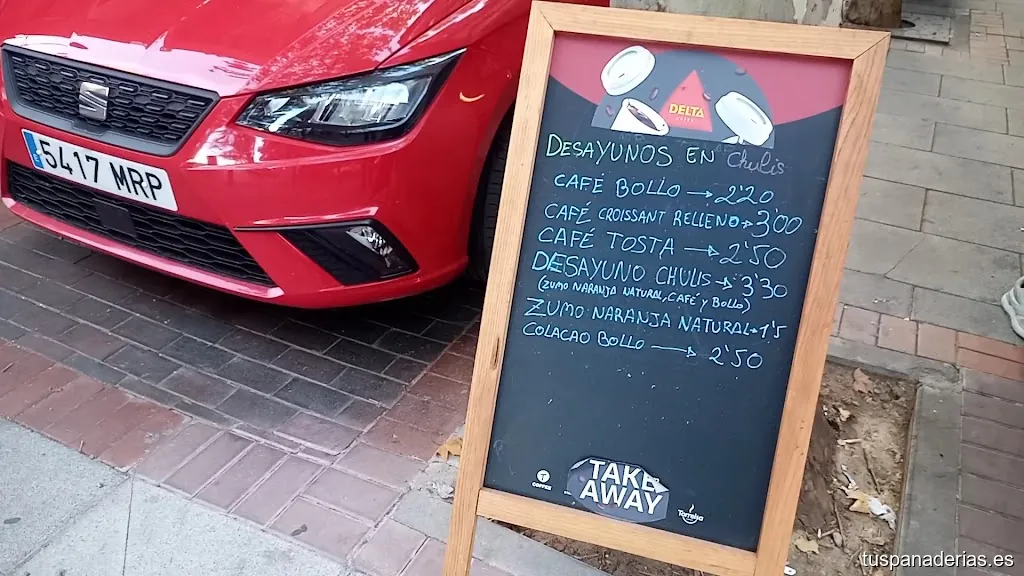 5417 MRP
DELTA
DESAYUNOS EN Chulis
CAFÉ BOLLO → 2'20
CAFÉ CROISSANT RELLENO → 3'00
CAFÉ TOSTA → 2'50
DESAYUNO CHULIS → 3'30
(ZUMO NARANJA NATURAL, CAFÉ Y BOLLO)
ZUMO NARANJA NATURAL → 1'5
COLACAO BOLLO → 2'50
TAKE
AWAY
COFFEE
tuspanaderias.es